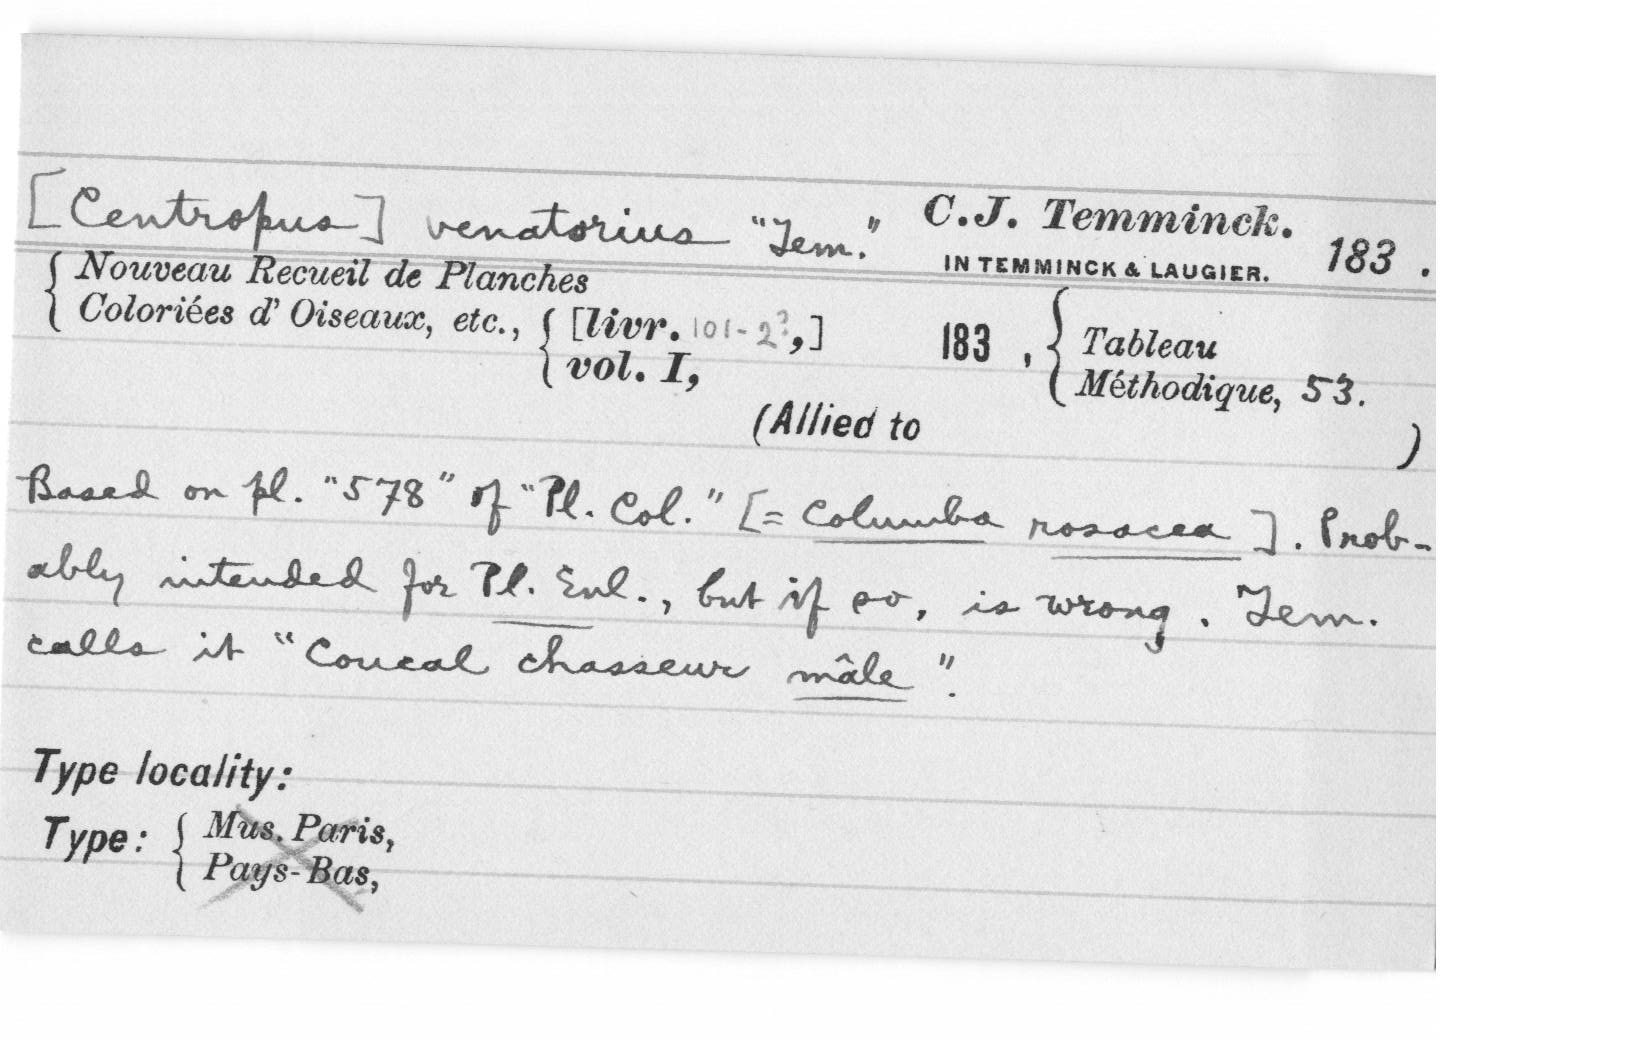 [Centropus] venatorius "Tem." C.J. Temminck. 183 .
IN TEMMINCK & LAUGIER.
{ Nouveau Recueil de Planches
Coloriées d' Oiseaux, etc., { [livr. 101-2?,] 183 , { Tableau
vol. I, Méthodique, 53.
(Allied to )
Based on pl. "578" of "Pl. Col." [= Columba rosacea ]. Prob-
ably intended for Pl. Enl., but if so, is wrong. Tem.
calls it "Coucal chasseur mâle".
Type locality:
Type: { Mus. Paris,
Pays-Bas,